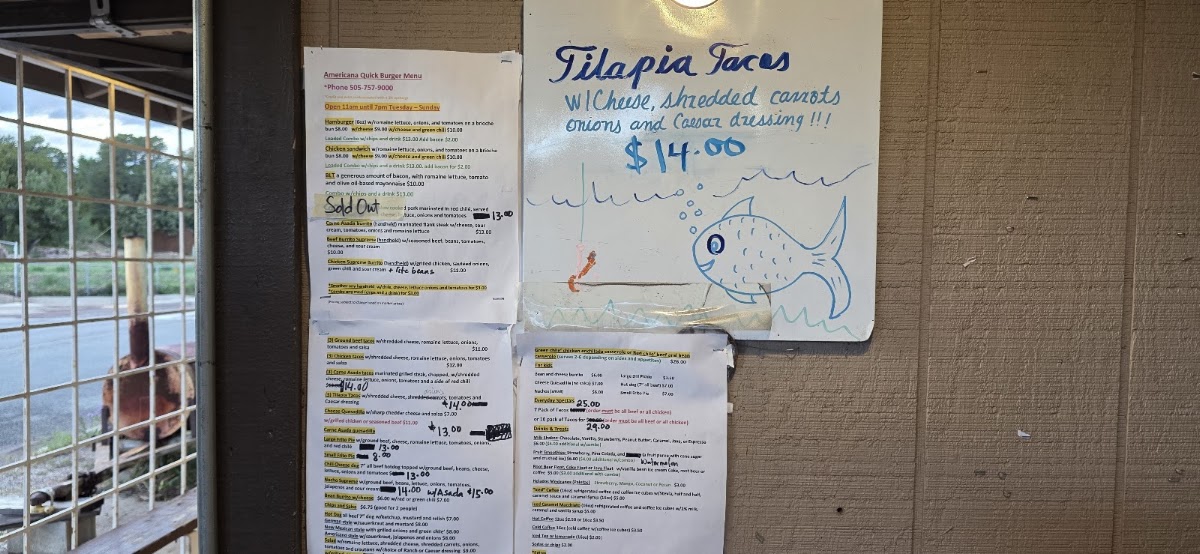 Americana Quick Burger Menu
*Phone 505-757-9000
Open 11am until 7pm Tuesday – Sunday
Hamburger (8oz) w/romaine lettuce, onions, and tomatoes on a brioche
bun $8.00 w/cheese $9.00 w/cheese and green chili $10.00
Loaded Combo w/chips and a drink $13.00 Add bacon $2.00
Chicken sandwich w/romaine lettuce, onions, and tomatoes on a brioche
bun $8.00 w/cheese $9.00 w/cheese and green chili $10.00
Loaded Combo w/chips and a drink $13.00, add bacon for $2.00
BLT a generous amount of bacon, with romaine lettuce, tomato
and olive oil-based mayonnaise $10.00
Combo w/chips and a drink $13.00
Sold Out pork marinated in red chile, served
lettuce, onions and tomatoes 13.00
Carne Asada Burrito (handheld) marinated flank steak w/cheese, sour
cream, tomatoes, onions and romaine lettuce $13.00
Beef Burrito Supreme (handheld) w/seasoned beef, beans, tomatoes,
cheese, and sour cream
$10.00
Chicken Supreme Burrito (handheld) w/grilled chicken, sauteed onions,
green chili and sour cream + refe beans $11.00
*Smother any handheld w/chile, cheese, lettuce onions and tomatoes for $3.00
Tilapia Tacos
W/Cheese, shredded carrots
onions and Caesar dressing!!!
$14.00
(3) Ground beef tacos w/shredded cheese, romaine lettuce, onions,
tomatoes and salsa $11.00
(3) Chicken tacos w/shredded cheese, romaine lettuce, onions, tomatoes
and salsa $12.00
(3) Carne Asada tacos marinated grilled steak, chopped, w/shredded
cheese, romaine lettuce, onions, tomatoes and a side of red chili
$14.00
(3) Tilapia Tacos w/shredded cheese, shredded tomatoes and
Caesar dressing $14.00
Cheese Quesadilla w/sharp cheddar cheese and salsa $7.00
w/grilled chicken or seasoned beef $11.00
Carne Asada quesadilla $13.00
Large Frito Pie w/ground beef, cheese, romaine lettuce, tomatoes, onions,
and red chile 13.00
Small Frito Pie 8.00
Chili Cheese dog 7" all beef hotdog topped w/ground beef, beans, cheese,
lettuce, onions and tomatoes 13.00
Nacho Supreme w/ground beef, beans, lettuce, onions, tomatoes,
jalapenos and sour cream 14.00 w/Asada $15.00
Bean Burrito w/cheese $6.00 w/red or green chil $7.00
Chips and Salsa $6.75 (good for 2 people)
Hot Dog all beef 7" dog w/ketchup, mustard and relish $7.00
German style w/sauerkraut and mustard $8.00
New Mexican style with grilled onions and green chile $8.00
Americana style w/sauerkraut, jalapenos and onions $8.00
Salad w/romaine lettuce, shredded cheese, shredded carrots, onions,
tomatoes and croutons w/choice of Ranch or Caesar dressing $9.00
Green chile chicken enchilada casserole or Red Chile beef and bean
casserole (serves 2-4 depending on sides and appetites) $28.00
For Kids
Bean and cheese burrito $6.00
Cheese Quesadilla (no salsa) $7.00 Hot dog (7" all beef) $7.00
Nachos (small) $6.00 Small Frito Pie $7.00
Everyday Specials 25.00
7 Pack of Tacos (order must be all beef or all chicken)
or 10 pack of Tacos for (order must be all beef or all chicken)
29.00
Drinks & Treats
Milk Shakes: Chocolate, Vanilla, Strawberry, Peanut Butter, Caramel, Oreo, or Espresso
Fruit Smoothies: Strawberry, Pina Colada, and
Watermelon
Iced Caramel Macchiato
Hot Coffee 12oz $2.50 or 16oz $3.50
Iced Tea or lemonade (16oz) $3.00
Sodas or chips $2.00